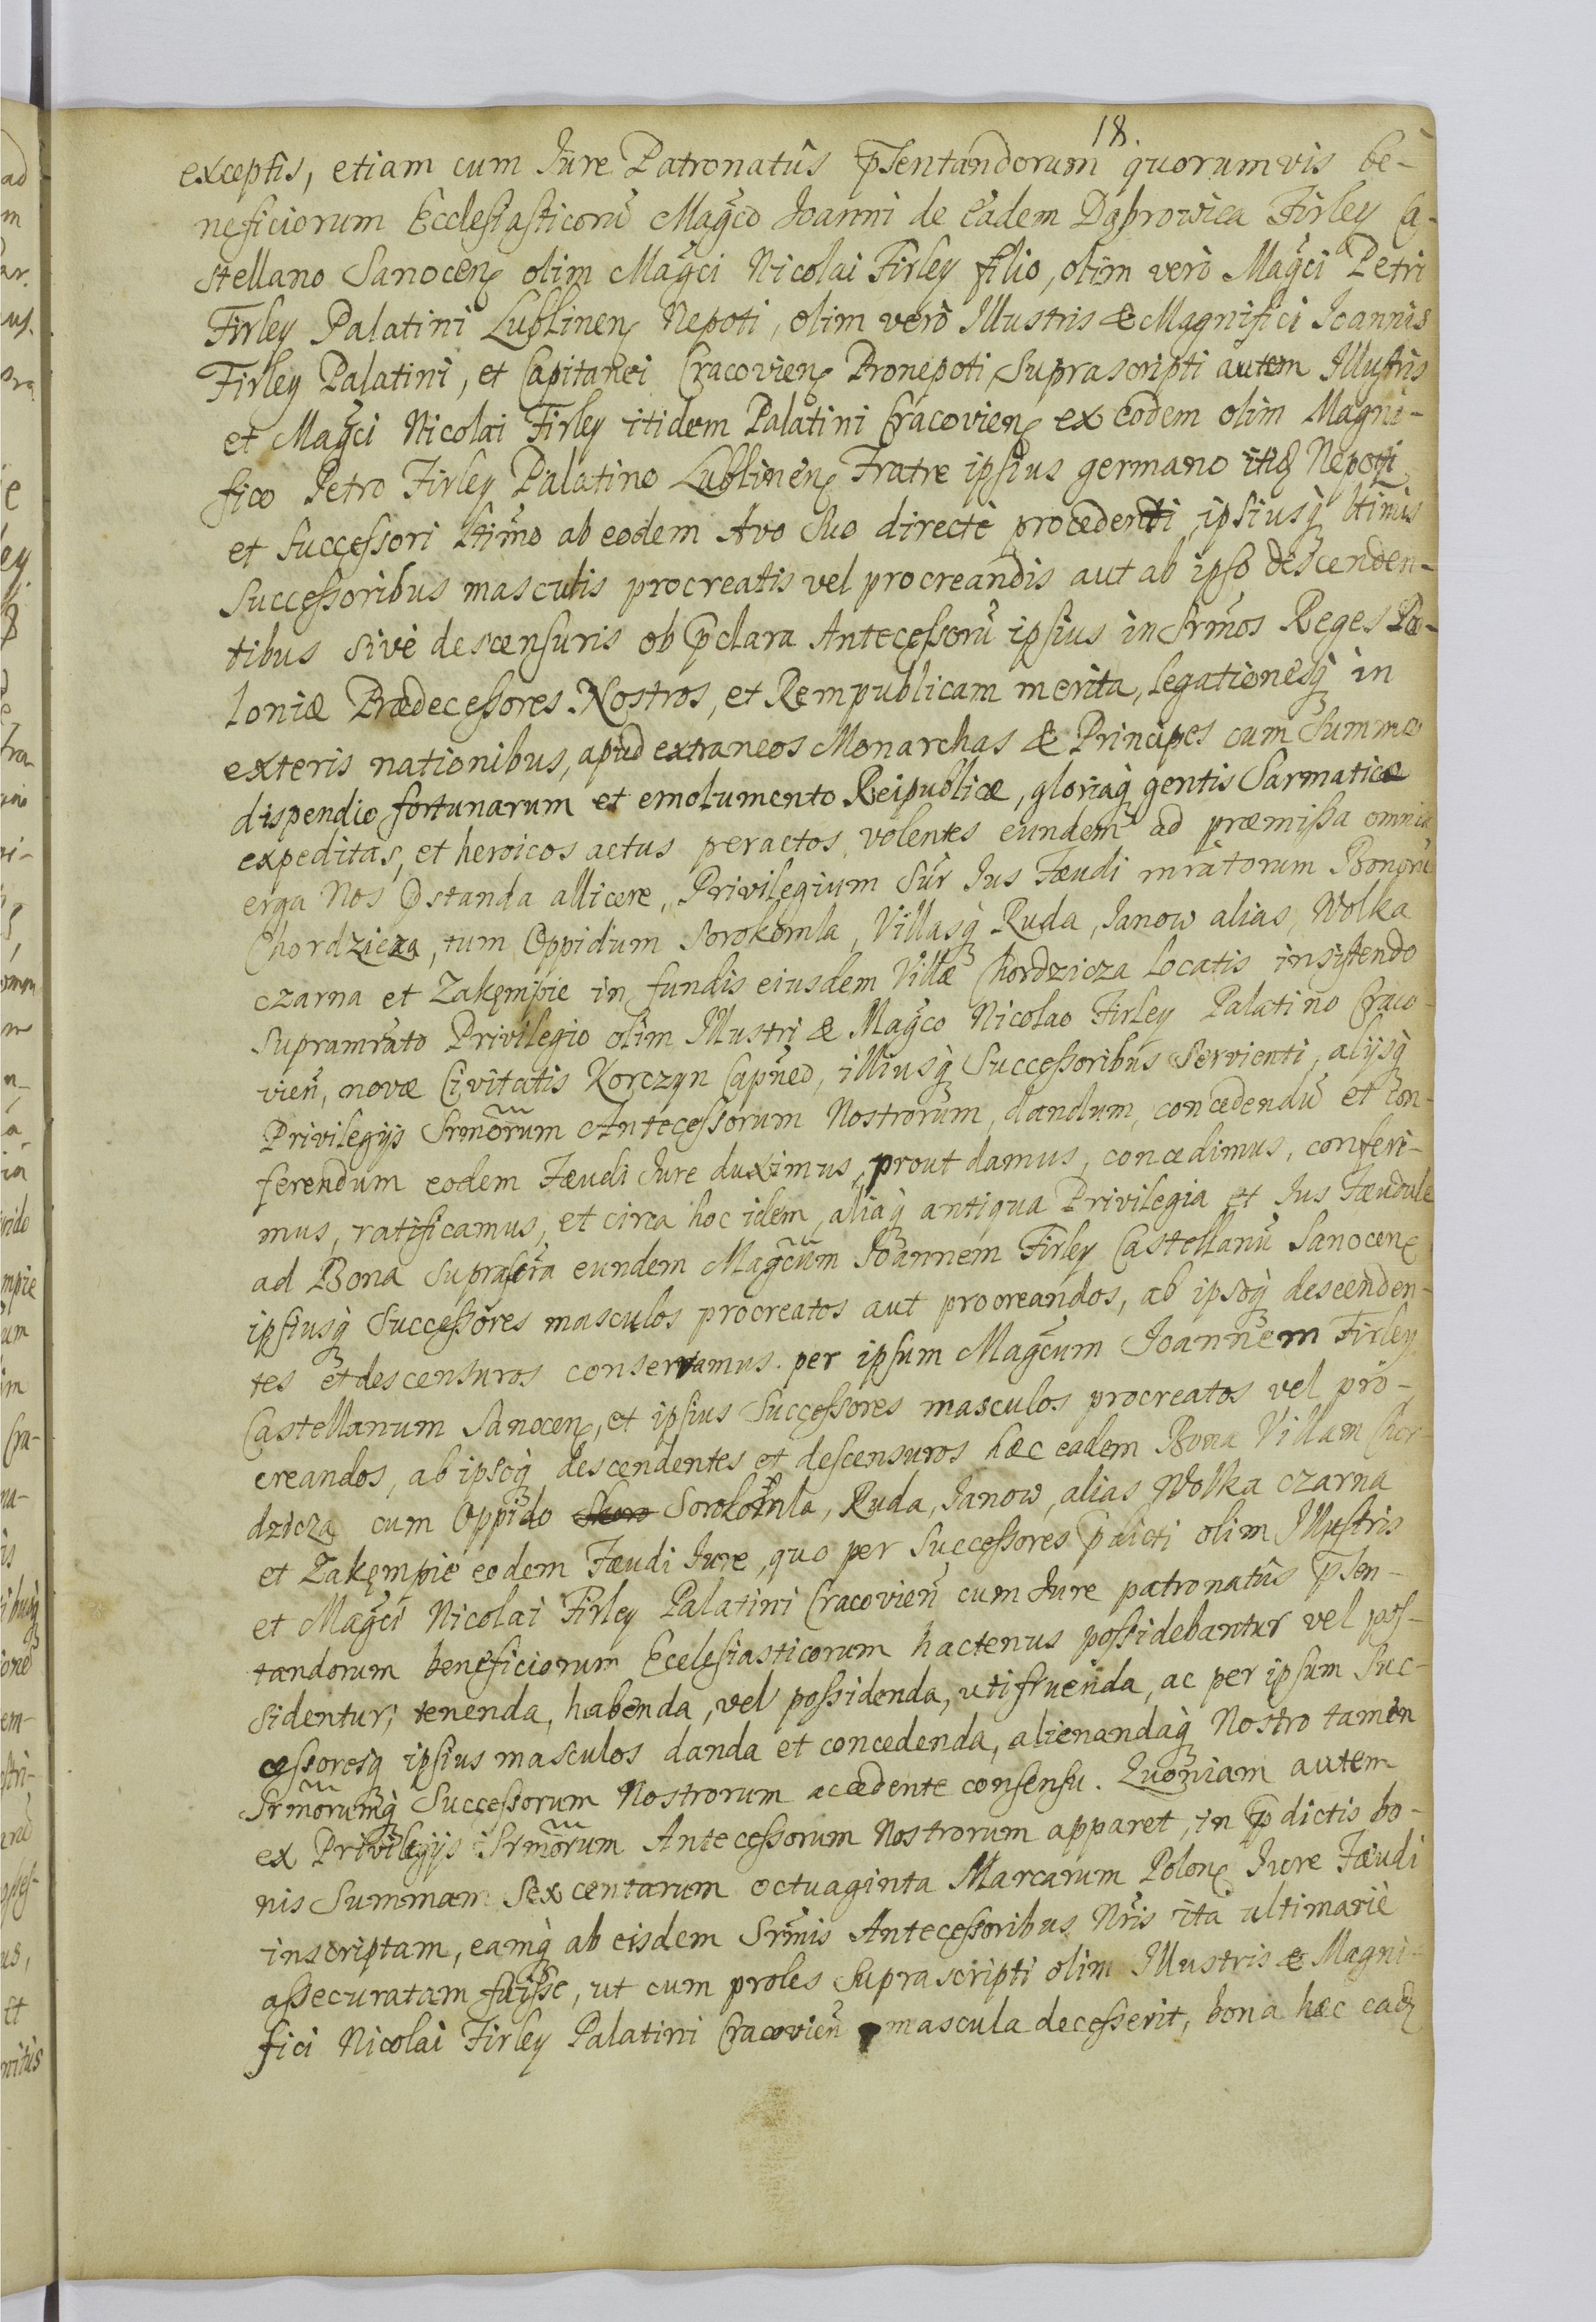 18.
exceptis, etiam cum Iure Patronatûs p̃sentandorum quorumvis be-
neficiorum Ecclesiasticorũ Mag̃co Ioanni de eadem Dąbrowica Firley Ca-
stellano Sanocen̨ olim Mag̃ci Nicolai Firley filio, olim verò Mag̃ci Petri
Firley Palatini Lublinen̨ Nepoti, olim verò Illustris & Magnifici Ioannis
Firley Palatini, et Capitanei Cracovien̨ Pronepoti, Suprascripti autem Illustris
et Mag̃ci Nicolai Firley itidem Palatini Cracovien̨ ex eodem olim Magni-
fico Petro Firley Palatino Lublinen̨ Fratre ipsius germano itid̨ Nepoti
et Successori ltimo ab eodem Avo Suo directè procedenti, ipsiusq̨ ltimis
Successoribus masculis procreatis vel procreandis aut ab ipso descenden-
tibus sive descensuris ob p̃clara Antecessorũ ipsius in Sr̃mos Reges Po-
loniæ Prædecessores Nostros, et Rempublicam merita, legationesq̨ in
exteris nationibus, apud extraneos Monarchas & Principes cum Summo
dispendio fortunarum et emolumento Reipublicæ, gloriaq̨ gentis Sarmaticæ
expeditas, et heroicos actus peractos, volentes eundem ad præmissa omnia
erga Nos p̃standa allicere, Privilegium Sur̃ Ius Fæudi mr̃atorum Bonorũ
Chordzicza, tum Oppidum Sorokomla, Villasq̨ Ruda, Ianow alias Wolka
czarna et Zakęmpie in fundis eiusdem Villæ Chordzicza locatis insistendo
Supramr̃ato Privilegio olim Illustri & Mag̃co Nicolao Firley Palatino Craco-
vien̄, novæ Civitatis Korczyn Capñeo, illiusq̨ Successoribus servienti, alijsq̨
Privilegijs Sr̃morum Antecessorum Nostrorum, dandum, concedendũ et con-
ferendum eodem Fæudi Iure duximus, prout damus, concedimus, conferi-
mus, ratificamus, et circa hoc idem, aliaq̨ antiqua Privilegia et Ius Fæudale
ad Bona Suprascr̃a eundem Mag̃cum Ioannem Firley Castellanũ Sanocen̨
ipsiusq̨ Successores masculos procreatos aut procreandos, ab ipsoq̨ descenden-
tes et descensuros conservamus. per ipsum Mag̃cum Ioannem Firley
Castellanum Sanocen̨, et ipsius Successores masculos procreatos vel pro-
creandos, ab ipsoq̨ descendentes et descensuros hæc eadem Bona Villam Chor-
dzicza cum Oppido Sorokomla, Ruda, Ianow, alias Wolka czarna
et Zakęmpie eodem Fæudi Iure, quo per Successores p̃dicti olim Illustris
et Mag̃ci Nicolai Firley Palatini Cracovien̄ cum Iure patronatûs p̃sen-
tandorum beneficiorum Ecclesiasticorum hactenus possidebantur vel pos-
sidentur, tenenda, habenda, vel possidenda, utifruenda, ac per ipsum Suc-
cessoresq̨ ipsius masculos danda et concedenda, alienandaq̨ Nostro tamen
Sr̃morumq̨ Successorum Nostrorum accedente consensu. Quoniam autem
ex Privilegijs Sr̃morum Antecessorum Nostrorum apparet, in p̃dictis bo-
nis Summam Sexcentarum octuaginta Marcarum Polon̨ Iure Fæudi
inscriptam, eamq̨ ab eisdem Sr̃mis Antecessoribus Nr̃is ita ultimariè
assecuratam fuisse, ut cum proles Suprascripti olim Illustris & Magni-
fici Nicolai Firley Palatini Cracovien̄ mascula decesserit, bona hæc ead̨